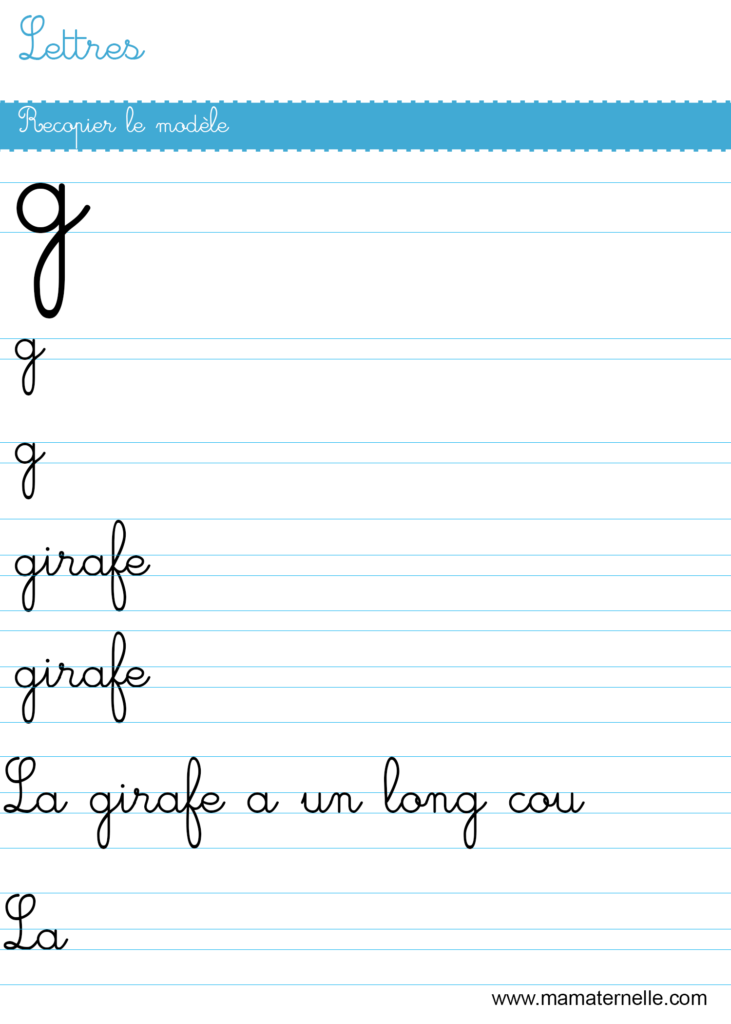 Lettres
Recopier le modèle
g
g
g
girafe
girafe
La girafe a un long cou
La
www.mamaternelle.com